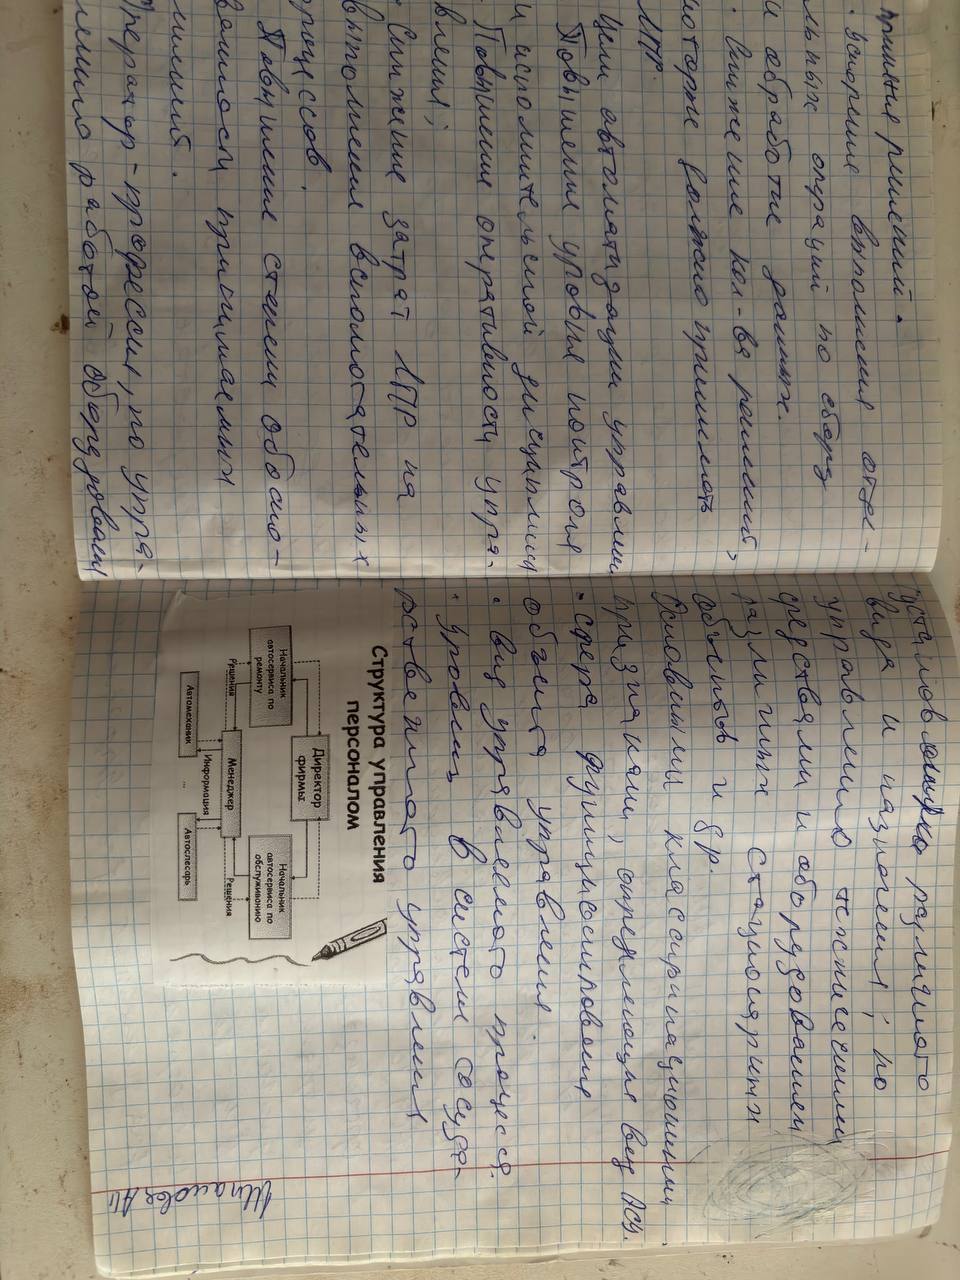 принятия решений.
· Ускорение выполнения отде-
льных операций по сбору
и обработке данных.
· Снижение кол-ва решений,
которые должно принимать
ЛПР.
Цели автоматизации управлен
· Повышение уровня контроля
и исполнительской дисциплины
· Повышение оперативности упра-
вления;
· Снижение затрат ЛПР на
выполнение вспомогательных
процессов.
Повышение степени обосно-
ванности принимаемых
решений.
Оператор - профессия, по упра-
лению работой оборудования
установками различного
вида и назначения; по
управлению техническими
средствами и оборудованием
различных стационарных
объектов и др.
Основными классификационными
признаками, определяющие вид АСУ.
· сфера функционирования
объекта управления.
· вид управляемого процесса.
· уровень в системе госуда-
рственного управления
Структура управления
персоналом
Директор
фирмы
Начальник
автосервиса по
ремонту
Начальник
автосервиса по
обслуживанию
Решения
Менеджер
Решения
Информация
Автомеханик
...
Автослесарь